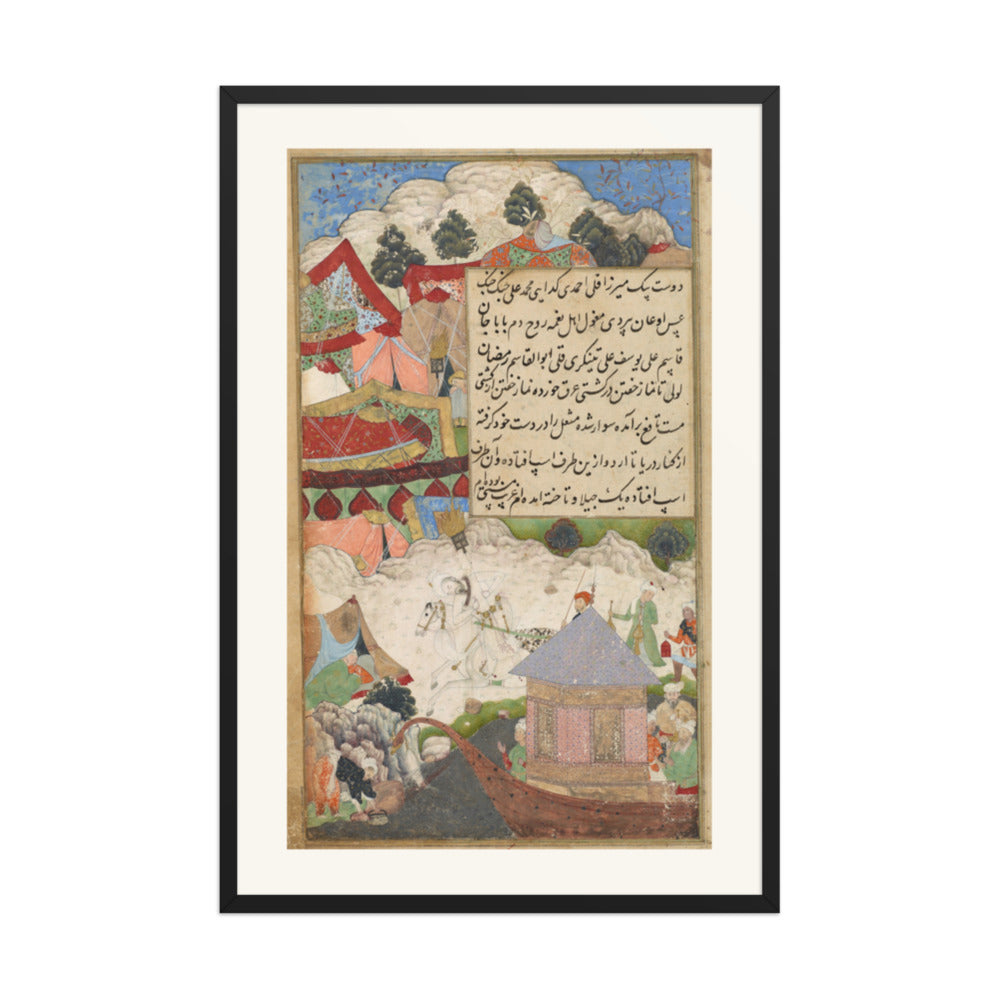 دوست بیک میرزا قلی احمدی کدایی محمد علی جنک جنک
عسس اوغان بردی مغول اهل نغمه روح دم بابا جان
قاسم علی یوسف علی تینکری قلی ابوالقاسم رمضان
لولی تا نماز خفتن در کشتی عرق خورده نماز خفتن از کشتی
مست تافع برآمده سوار شده مشعل را در دست خود کرفته
از کنار دریا تا اردو ازین طرف اسپ افتاده و آن طرف
اسپ افتاده یک جیلاو تاخته آمده ام غریب مستی بوده ام